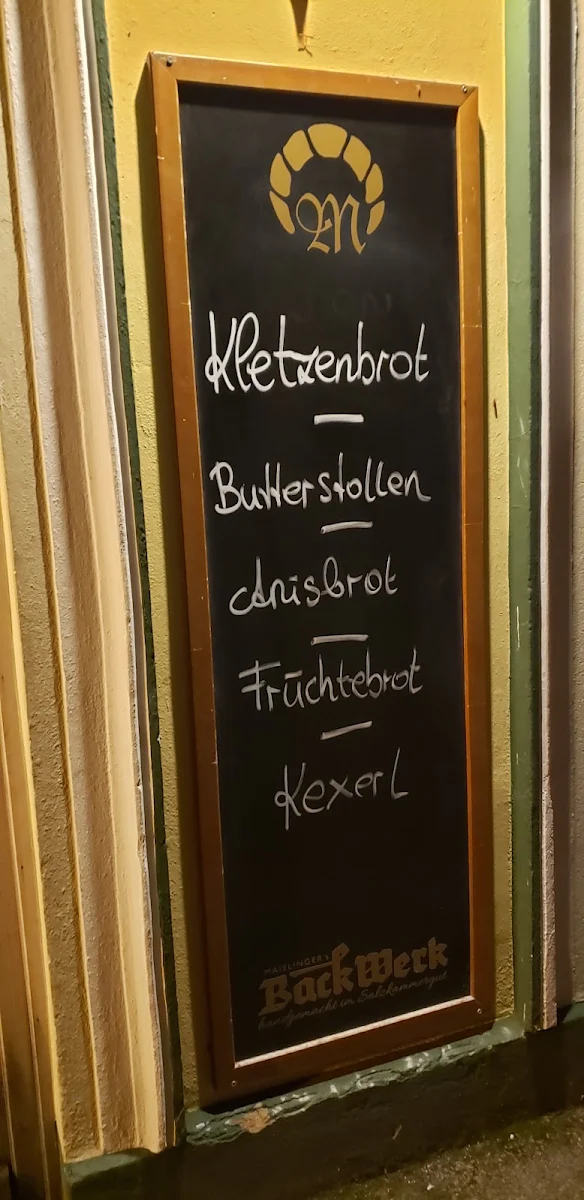 M
Kletzenbrot
Butterstollen
Anisbrot
Früchtebrot
Kexerl
MAISLINGER'S
BackWerk
handgemacht im Salzkammergut